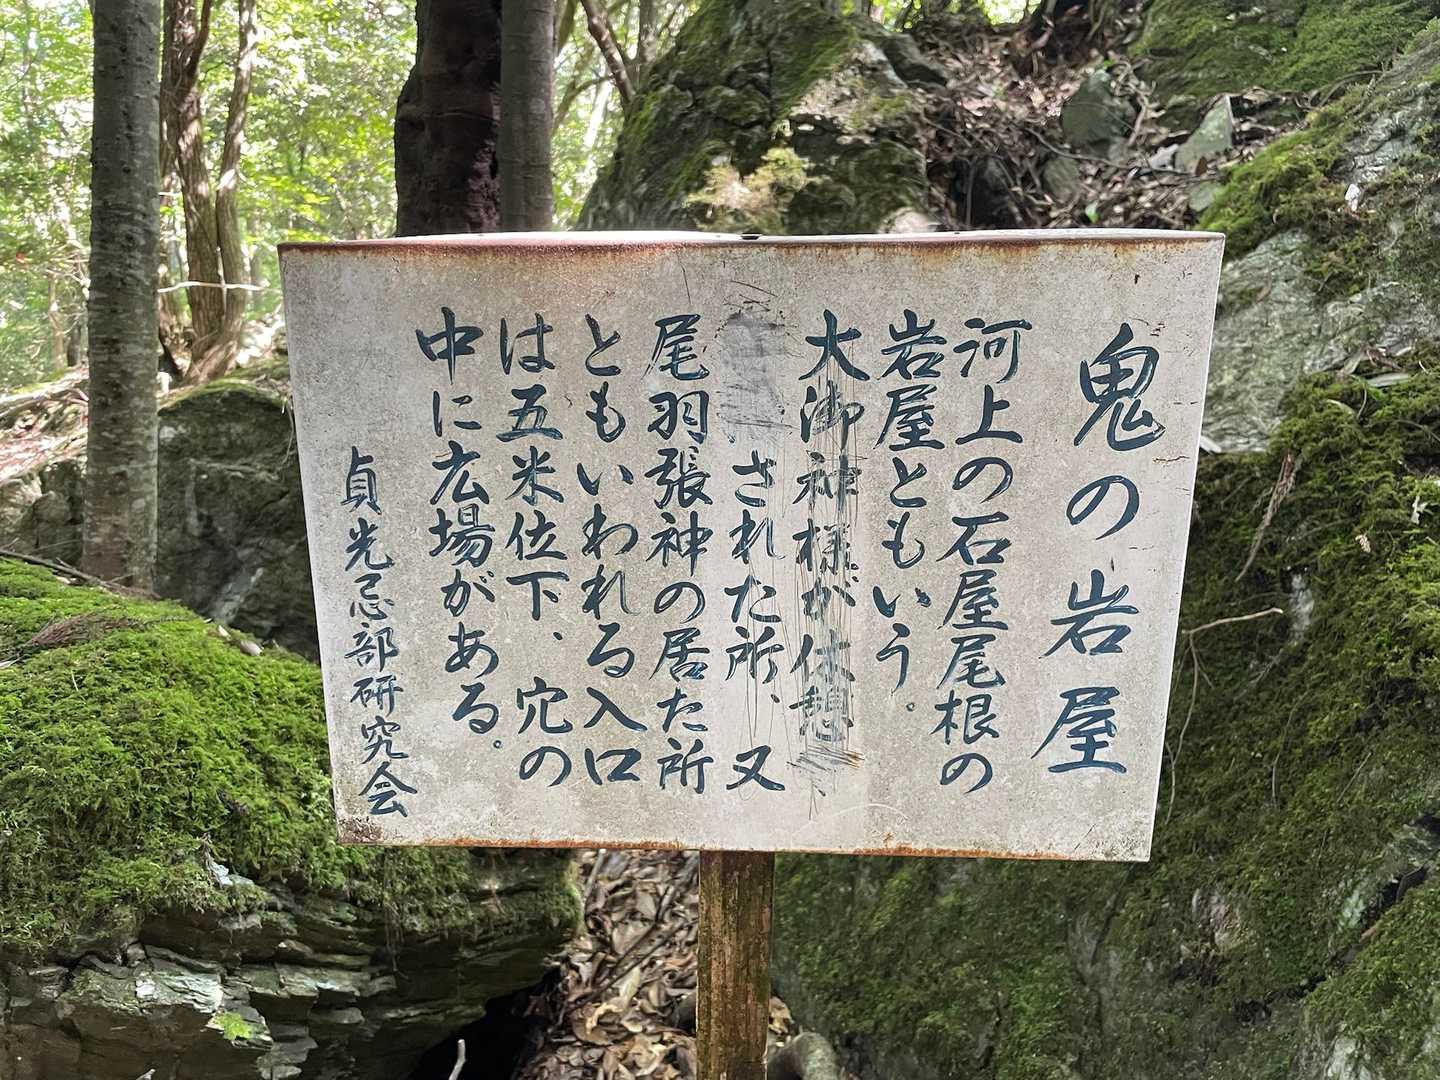 鬼の岩屋
河上の石屋尾根の
岩屋ともいう。
大御神様が休憩、
された所、又
尾羽張神の居た所
ともいわれる入口
は五米位下、穴の
中に広場がある。
貞光忌部研究会